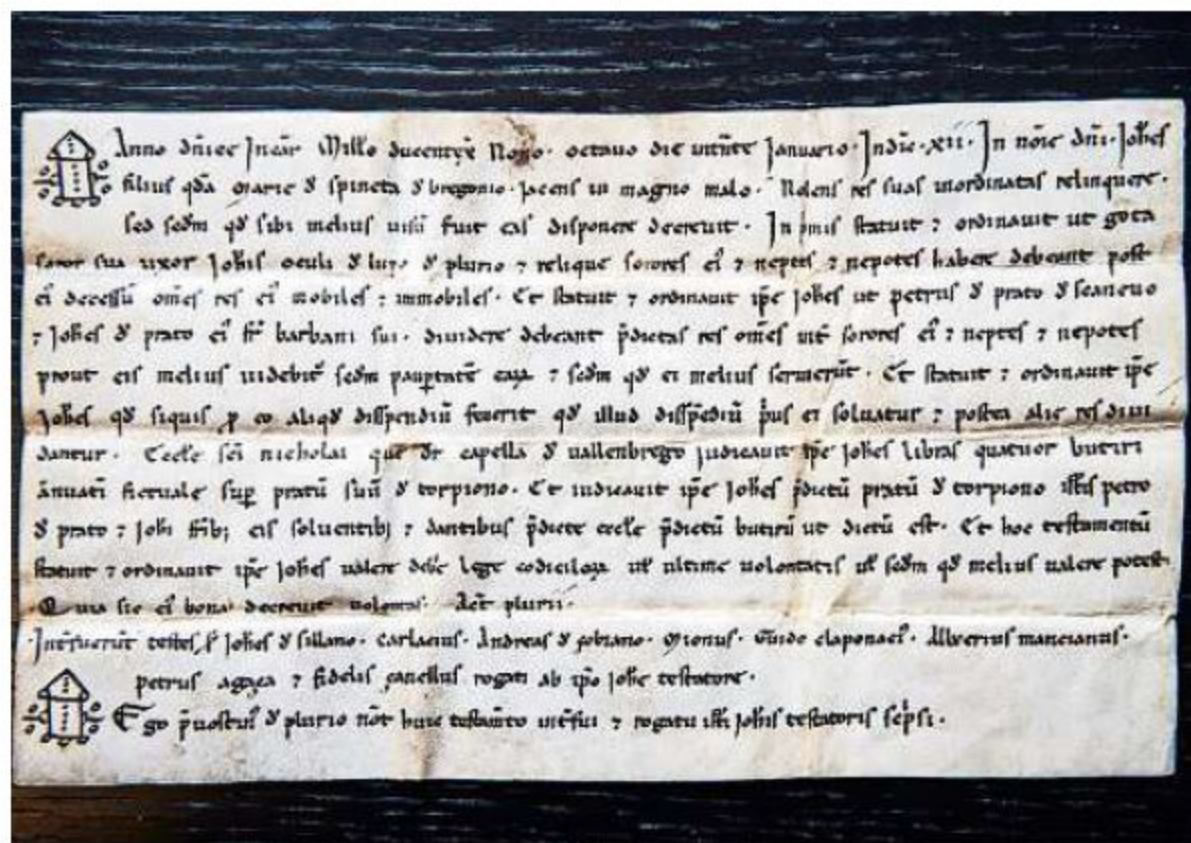 Anno dn̄ice Incar̄ Mill̄o ducentẹ Nono. octauo die intn̄te Januario. Indic̄. xii. In nōie dn̄i. Joh̄es
filius qd̄a marie d̄ spineta d̄ bregonio. Jacens in magno malo. Nolens res suas inordinatas relinquere.
sed scd̄m qd̄ sibi melius uisū fuit eas disponere decreuit. In pmis statuit ⁊ ordinauit ut gota
soror sua uxor Joh̄is oculi d̄ lupo d̄ plurio ⁊ relique sorores ei᾿ ⁊ neptes ⁊ nepotes habere debeant post
ei᾿ decessū om̄es res ei᾿ mobiles ⁊ immobiles. Et statuit ⁊ ordinauit ip̄e Joh̄es ut petrus d̄ prato d̄
⁊ Joh̄es d̄ prato ei᾿ fr̄ barbani sui. diuidere debeant p̄dictas res om̄es int̄ sorores ei᾿ ⁊ neptes ⁊ nepotes
prout eis melius uidebit̄ scd̄m paupertatē eaꝝ ⁊ scd̄m qd̄ ei melius seruierūt. Et statuit ⁊ ordinauit ip̄e
Joh̄es qd̄ siquis ꝓ eo aliqd̄ disspendiū fecerit qd̄ illud disspēdiū p̄us ei soluatur ⁊ postea alie res diui
dantur. Eccl̄e sc̄i nicholai que dr̄ capella d̄ uallenbrego iudicauit ip̄e Joh̄es libras quatuor butiri
ānuati fictuale sup̄ pratū suū d̄ torpiono. Et iudicauit ip̄e Joh̄es p̄dictū pratū d̄ torpiono ill̄is petro
d̄ prato ⁊ Joh̄i fr̄ib; eis soluentib; ⁊ dantibus p̄dicte eccl̄e p̄dictū butirū ut dictū est. Et hoc testamentū
statuit ⁊ ordinauit ip̄e Joh̄es ualere deb̄e lege codicilloꝝ ul̄ ultime uolontatis ul̄ scd̄m qd̄ melius ualere potest.
Quia sic ei᾿ bona decreuit uolontas. Act̄ plurii.
Int̄fuerūt testes Joh̄es d̄ sillano. Carlacius. Andreas d̄ sobiano. Guido claponaci᾿. Aluerius mancianus.
petrus agaza ⁊ fidelis çanellus rogati ab ip̄o Joh̄e testatore.
Ego p̄uostus᾿ d̄ plurio nōt huic testam̄to int̄fui ⁊ rogatu ill̄i Joh̄is testatoris sc̄psi.